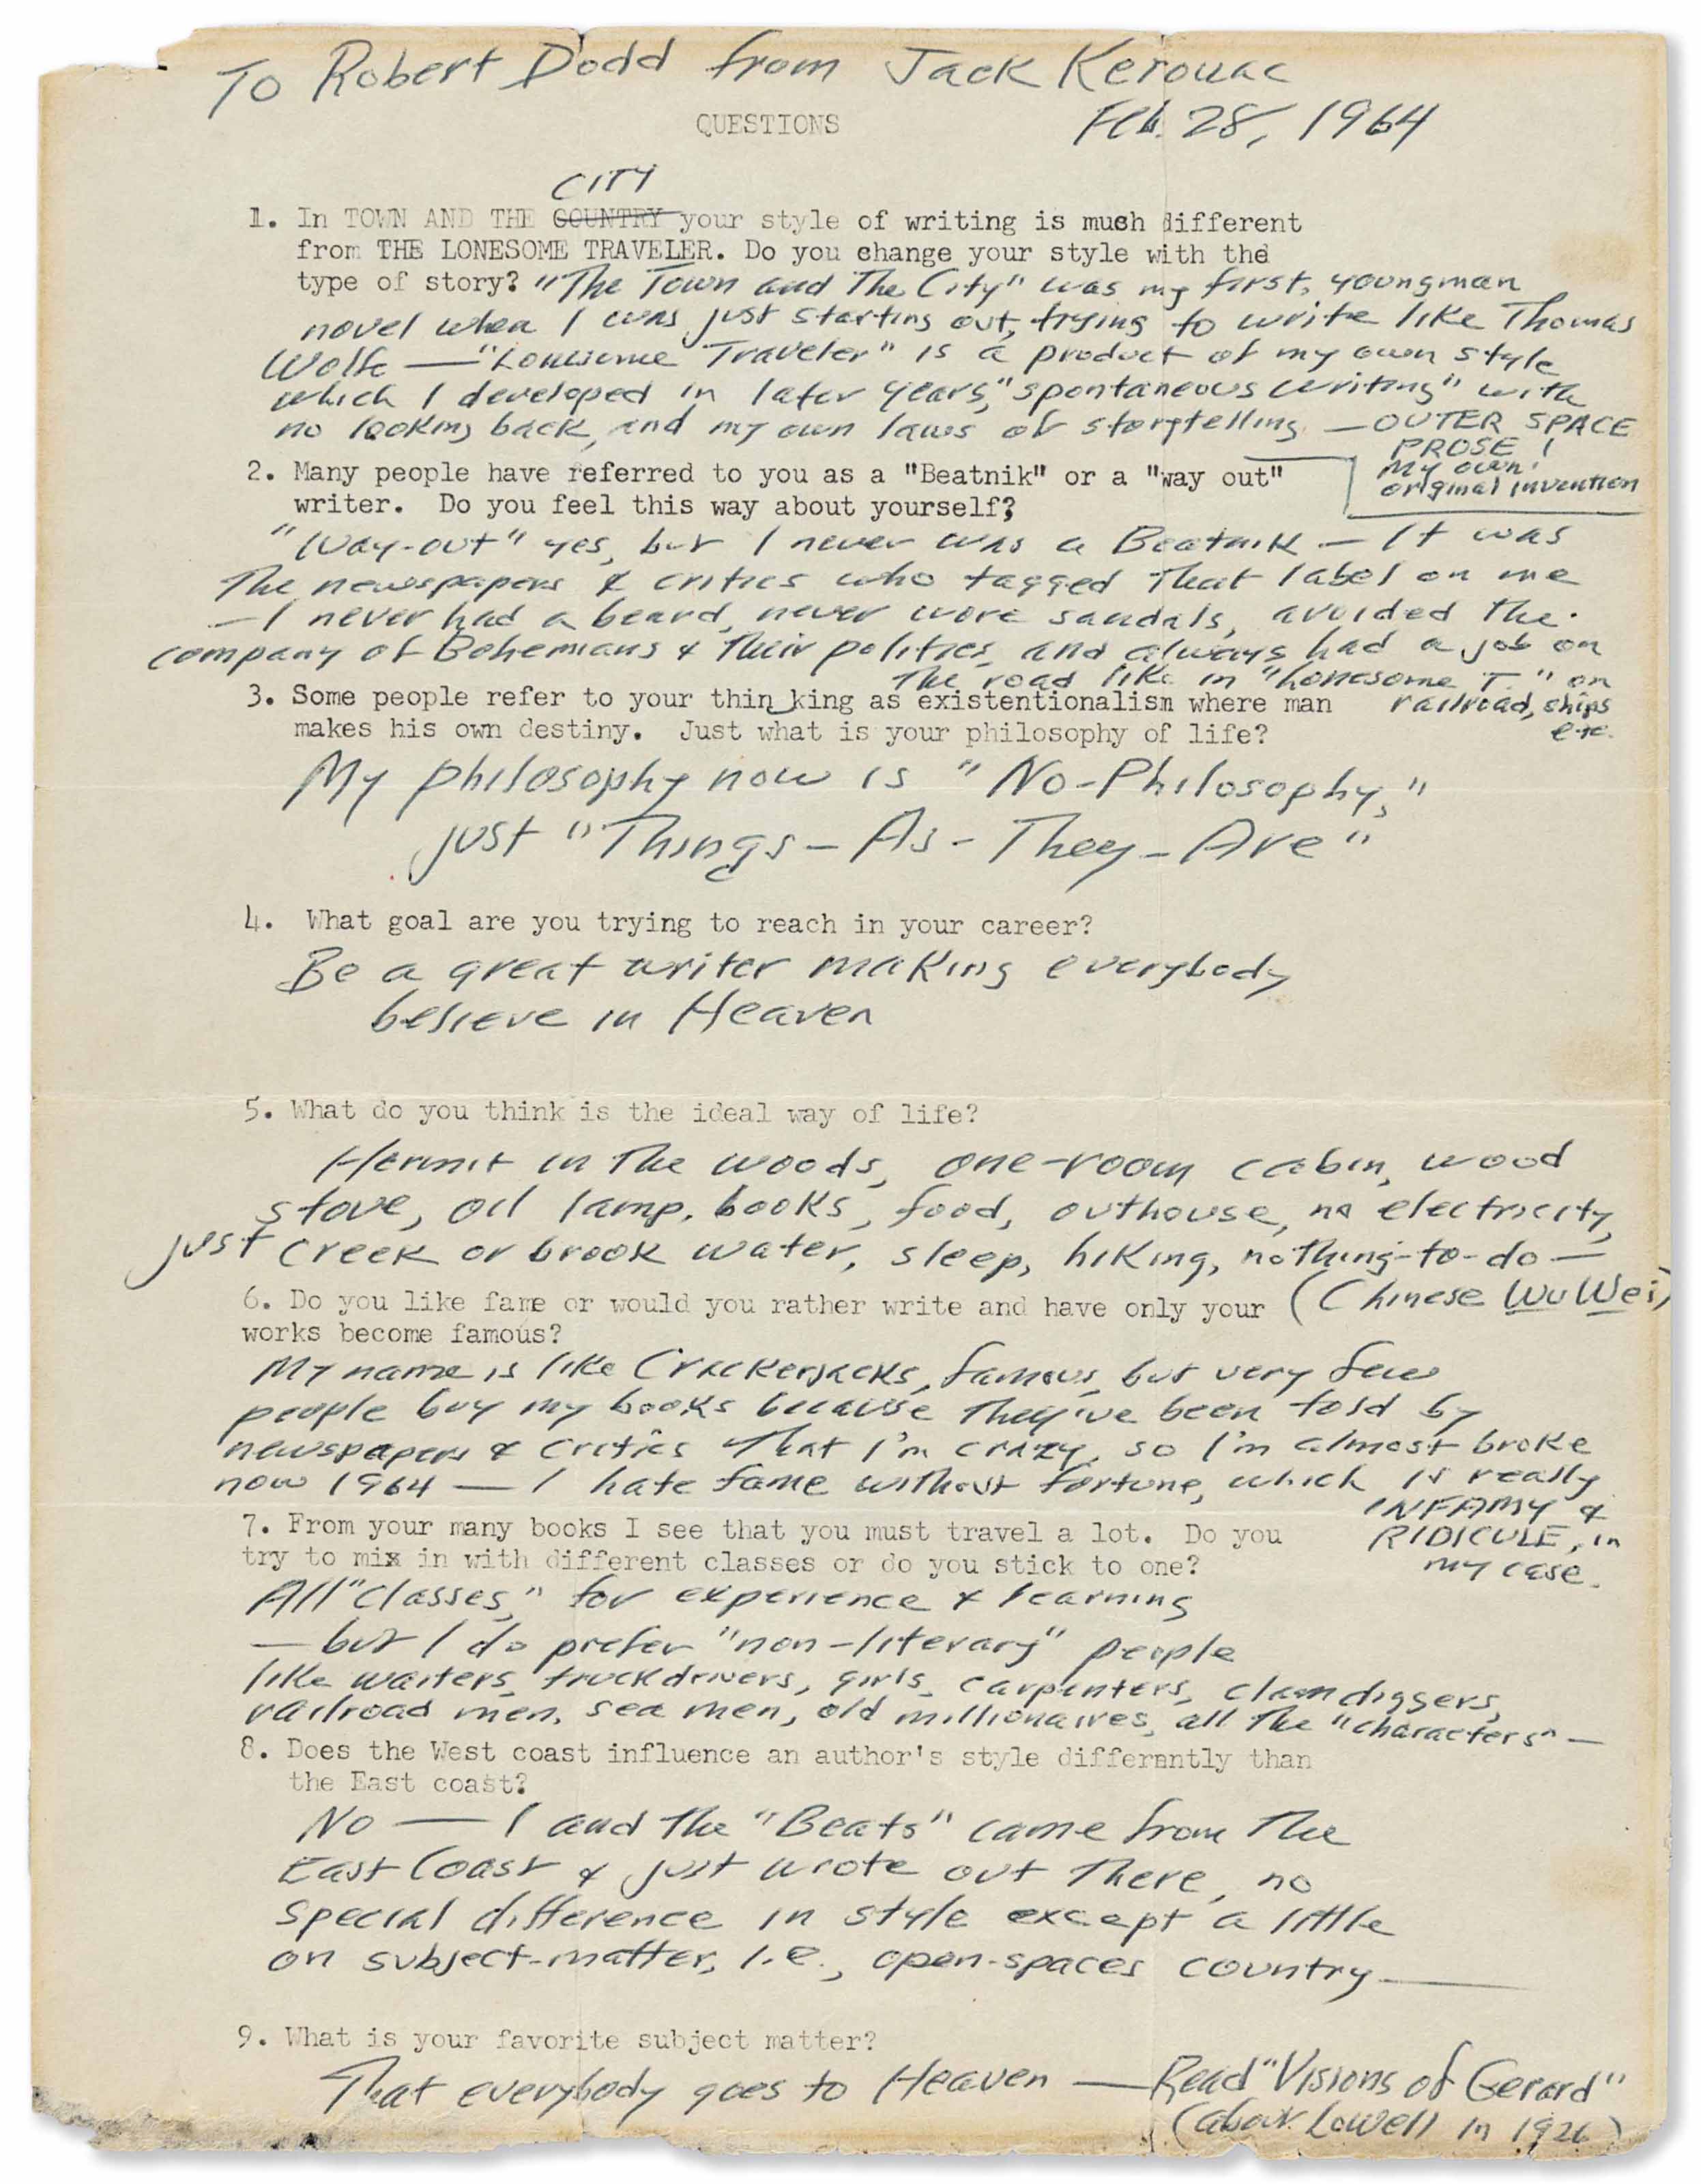 To Robert Dodd from Jack Kerouac
QUESTIONS
Feb. 28, 1964
CITY
1. In TOWN AND THE COUNTRY your style of writing is much different
from THE LONESOME TRAVELER. Do you change your style with the
type of story? "The Town and The City" was my first, youngman
novel when I was just starting out, trying to write like Thomas
Wolfe — "Lonesome Traveler" is a product of my own style
which I developed in later years, "spontaneous writing" with
no looking back, and my own laws of storytelling — OUTER SPACE
PROSE!
My own
original invention
2. Many people have referred to you as a "Beatnik" or a "way out"
writer. Do you feel this way about yourself?
"Way-out" yes, but I never was a Beatnik — It was
The newspapers & critics who tagged that label on me
— I never had a beard, never wore sandals, avoided the
company of Bohemians & their politics, and always had a job on
The road like in "Lonesome T." on
railroad, ships
etc.
3. Some people refer to your thin king as existentionalism where man
makes his own destiny. Just what is your philosophy of life?
My philosophy now is "No-Philosophy,"
just "Things-As-They-Are"
4. What goal are you trying to reach in your career?
Be a great writer making everybody
believe in Heaven
5. What do you think is the ideal way of life?
Hermit in the woods, one-room cabin, wood
stove, oil lamp, books, food, outhouse, no electricity,
just creek or brook water, sleep, hiking, nothing-to-do —
(Chinese Wu Wei)
6. Do you like fame or would you rather write and have only your
works become famous?
My name is like Crackerjacks, famous, but very few
people buy my books because they've been told by
newspapers & critics that I'm crazy, so I'm almost broke
now 1964 — I hate fame without fortune, which is really
INFAMY &
RIDICULE, in
my case.
7. From your many books I see that you must travel a lot. Do you
try to mix in with different classes or do you stick to one?
All "classes," for experience & learning
— but I do prefer "non-literary" people
like waiters, truckdrivers, girls, carpenters, clamdiggers,
railroad men, sea men, old millionaires, all the "characters" —
8. Does the West coast influence an author's style differntly than
the East coast?
No — I and the "Beats" came from the
East Coast & just wrote out there, no
special difference in style except a little
on subject-matter, i.e., open-spaces country —
9. What is your favorite subject matter?
That everybody goes to Heaven — Read "Visions of Gerard"
(about Lowell in 1926)